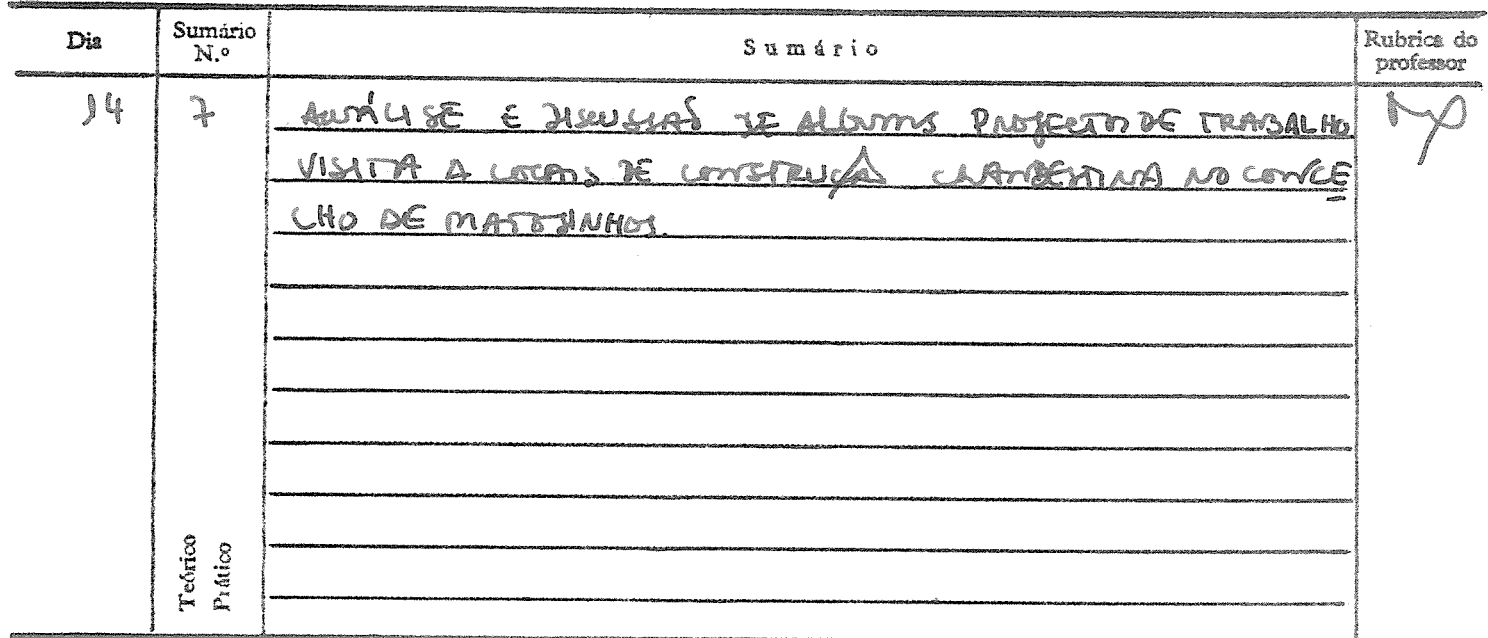 Dia Sumário N.º Sumário Rubrica do professor
14 7 ANÁLISE E DISCUSSÃO DE ALGUNS PROJECTOS DE TRABALHO
VISITA A LOCAIS DE CONSTRUÇÃO CLANDESTINA NO CONCE
LHO DE MATOSINHOS.
Teórico
Prático